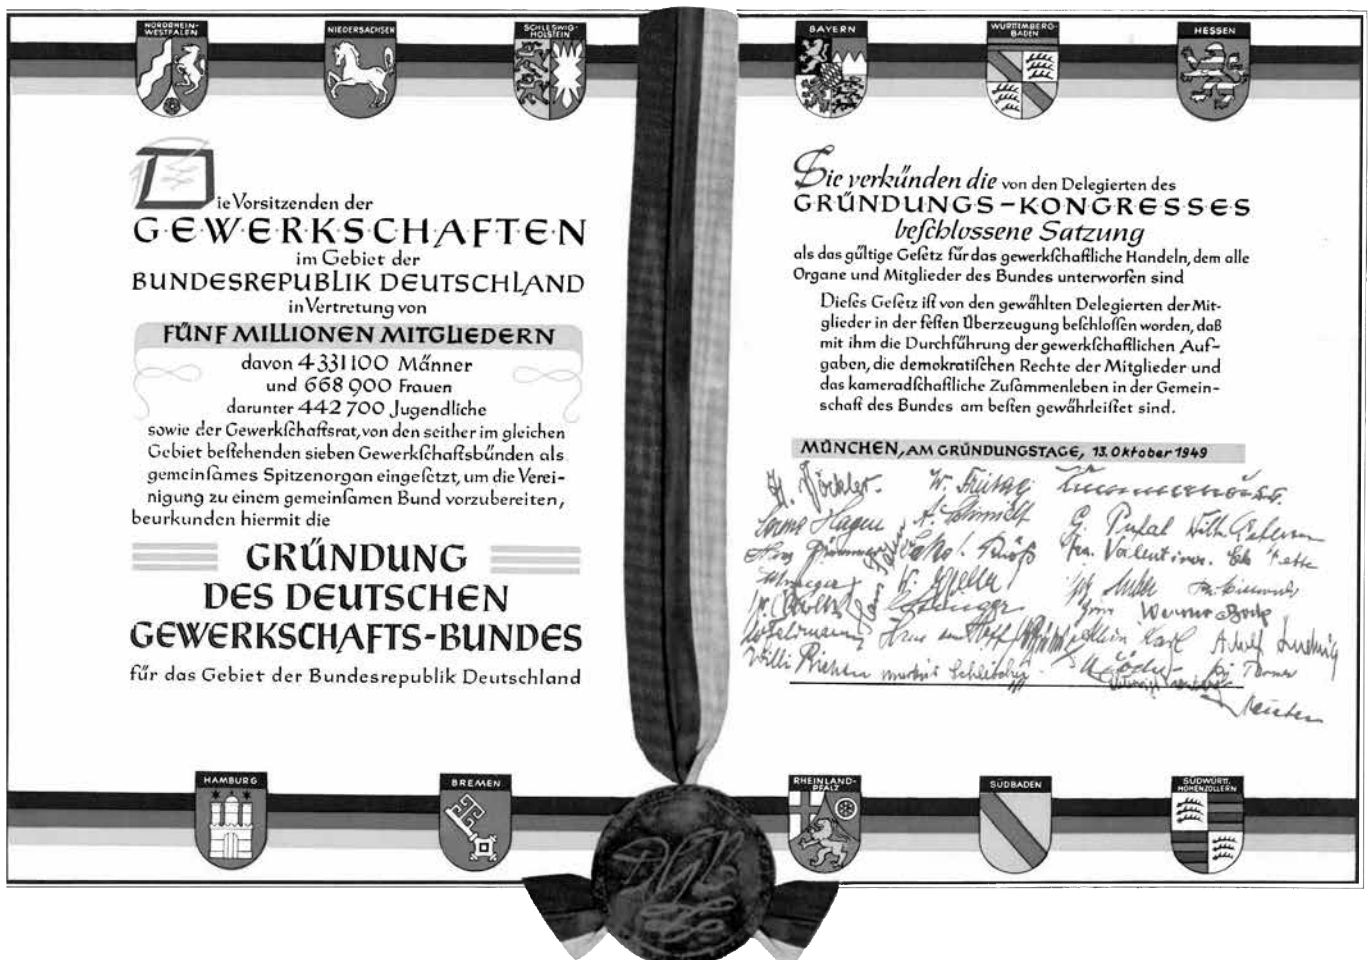 NORDRHEIN-
WESTFALEN
NIEDERSACHSEN
SCHLESWIG-
HOLSTEIN
BAYERN
WÜRTTEMBERG-
BADEN
HESSEN
Die Vorsitzenden der
GEWERKSCHAFTEN
im Gebiet der
BUNDESREPUBLIK DEUTSCHLAND
in Vertretung von
FÜNF MILLIONEN MITGLIEDERN
davon 4331100 Männer
und 668900 Frauen
darunter 442700 Jugendliche
sowie der Gewerkſchaftsrat, von den seither im gleichen
Gebiet beſtehenden sieben Gewerkſchaftsbünden als
gemeinſames Spitzenorgan eingeſetzt, um die Verei-
nigung zu einem gemeinſamen Bund vorzubereiten,
beurkunden hiermit die
GRÜNDUNG
DES DEUTSCHEN
GEWERKSCHAFTS-BUNDES
für das Gebiet der Bundesrepublik Deutschland
Sie verkünden die von den Delegierten des
GRÜNDUNGS-KONGRESSES
beſchlossene Satzung
als das gültige Geſetz für das gewerkſchaftliche Handeln, dem alle
Organe und Mitglieder des Bundes unterworfen sind
Dieſes Geſetz iſt von den gewählten Delegierten der Mit-
glieder in der feſten Überzeugung beſchloſſen worden, daß
mit ihm die Durchführung der gewerkſchaftlichen Auf-
gaben, die demokratiſchen Rechte der Mitglieder und
das kameradſchaftliche Zuſammenleben in der Gemein-
schaft des Bundes am beſten gewährleiſtet sind.
MÜNCHEN, AM GRÜNDUNGSTAGE, 13. Oktober 1949
H. Böckler. W. Freitag
Hagen A. Schmidt G.
Werner Bock
Karl Adolf Ludwig
Willi
HAMBURG
BREMEN
RHEINLAND-
PFALZ
SÜDBADEN
SÜDWÜRTT.
HOHENZOLLERN
DGB